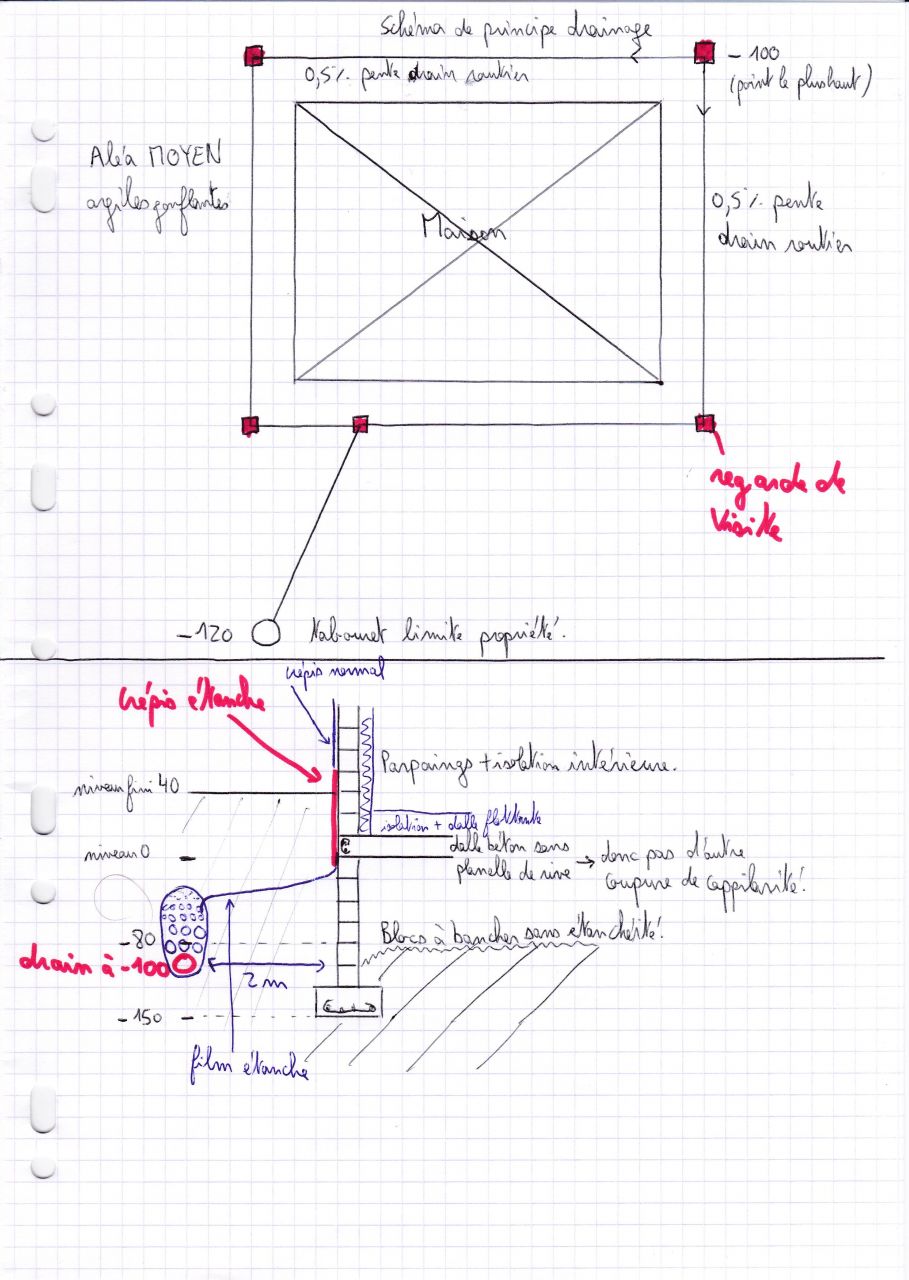 Schéma de principe drainage
- 100
(point le plus haut)
0,5% pente drain routier
Aléa MOYEN
argiles gonflantes
Maison
0,5% pente
drain routier
regarde de
visite
-120
Tabouret limite propriété.
crépis normal
crépis étanche
Parpaings + isolation intérieure.
niveau fini 40
isolation + dalle flottante
niveau 0 -
dalle béton sans
planelle de rive → donc pas d'autre
coupure de cappilarité.
Blocs à bancher sans étanchéité.
-80
drain à -100
2 m
-150 -
film étanche